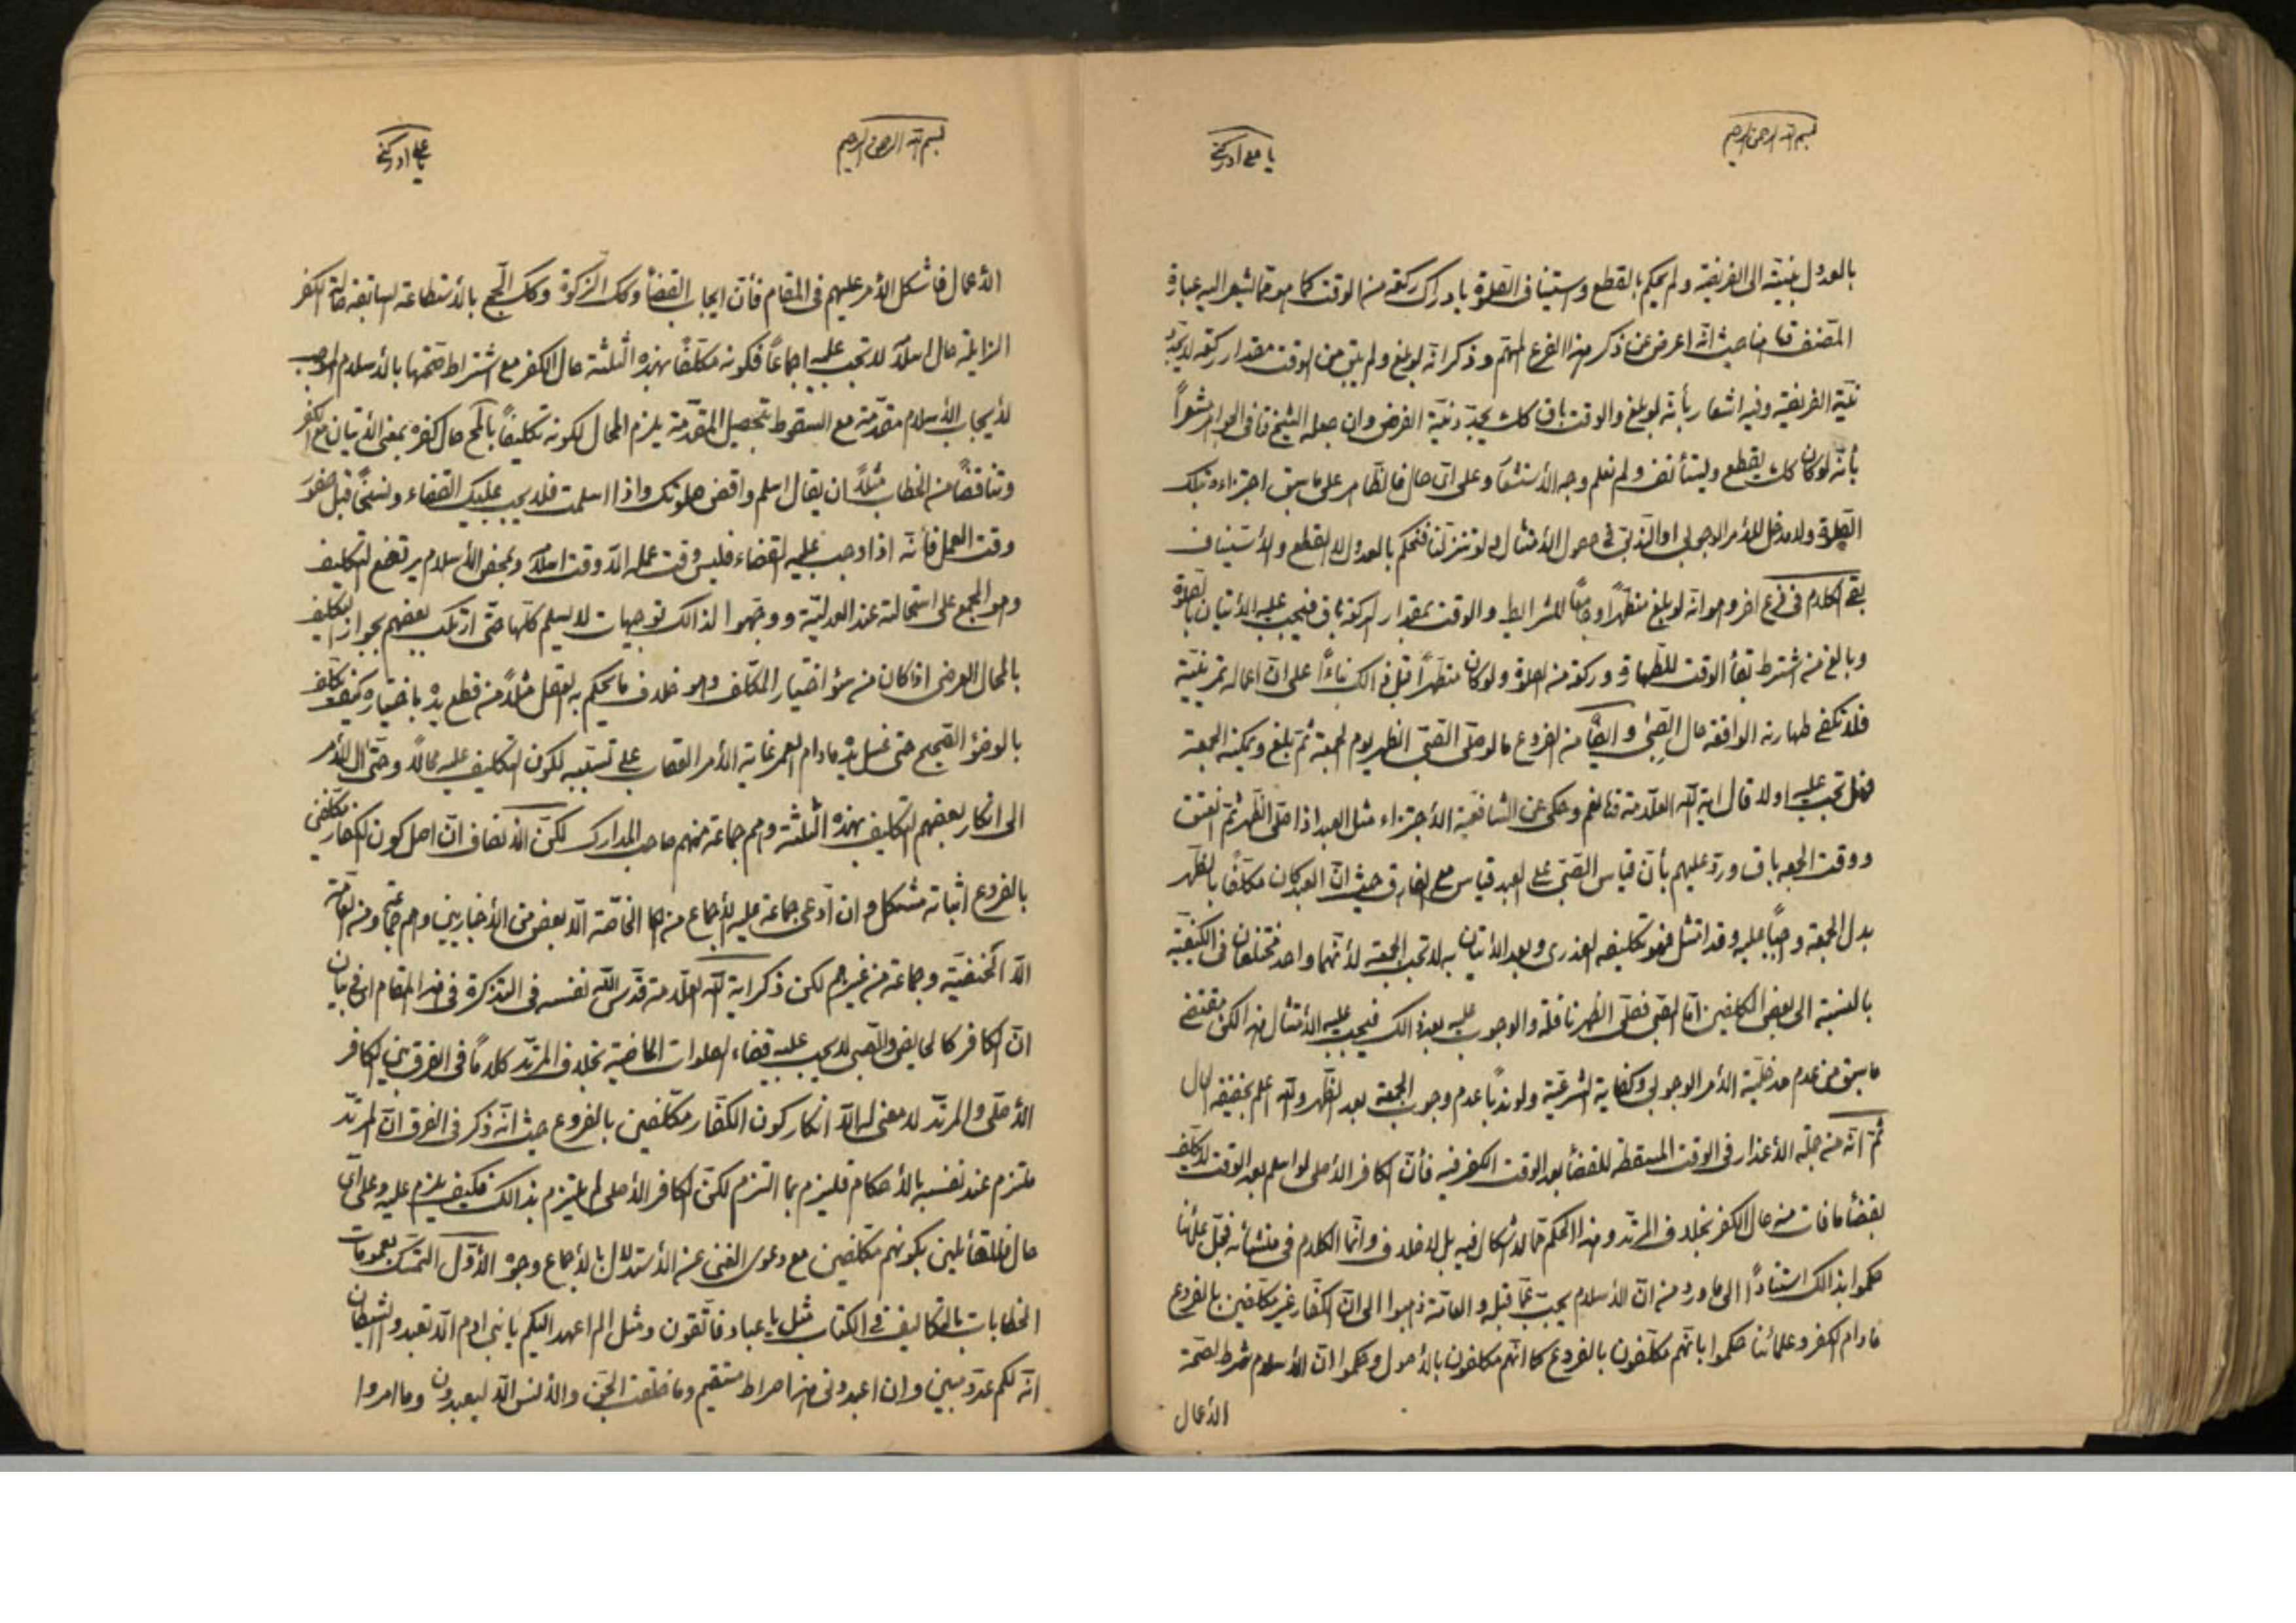 بسم الله الرحمن الرحيم
يا علي ادركني
بالعدول بنيته الى الفريضة ولم يحكم بالقطع واستيناف الصلوة بادراك ركعة من الوقت كما هو مما يشعر اليه عبارة
المصنف قده هنا حيث انه اعرض عن ذكر هذا الفرع المهم وذكر انه لو بلغ ولم يبق من الوقت مقدار ركعة لا يجدد
نية الفريضة وفيه اشعار بأنه لو بلغ والوقت باق كك يجدد نية الفرض وان جعله الشيخ قده في الجواهر مشعراً
بأنه لو كان كك يقطع ويستأنف ولم نعلم وجه الأستشعار وعلى اى حال فالظاهر على ما سبق اجتزاءه بتلك
الصلوة ولا مدخل للأمر الوجوبي او الندبي في حصول الأمتثال ولو تنزلنا فنحكم بالعدول لا القطع والأستيناف
بقي الكلام في فرع اخر وهو انه لو بلغ متطهراً وجامعاً للشرايط والوقت بمقدار الركعة باق فيجب عليه الأتيان بالصلوة
وبالغ من اشترط بقاء الوقت للطهارة وركعة من الصلوة ولو كان متطهراً قبل ذالك بناءاً على ان اعماله تمرينية
فلا تكفى طهارته الواقعة حال الصبى وايضاً من الفروع ما لو صلى الصبى الظهر يوم الجمعة ثم بلغ ويمكنه الجمعة
فهل تجب عليه او لا قال اية الله العلامة قده نعم وحكى عن الشافعية الأجتزاء مثل العبد اذا صلى الظهر ثم انعتق
ووقت الجمعه باق ورد عليهم بأن قياس الصبى على العبد قياس مع الفارق حيث ان العبد كان مكلفاً بالظهر
بدل الجمعة واجباً عليه وقد امتثل فهو تكليفه العذرى وبعد الأتيان به لا تجب الجمعة لأنهما واحد مختلفان في الكيفية
بالنسبة الى بعض المكلفين اما الصبى فصلى الظهر نافلة والوجوب عليه بعد ذالك فيجب عليه الأمتثال هذا لكن مقتضى
ما سبق من عدم مدخلية الأمر الوجوبي وكفاية الشرعية ولو ندباً عدم وجوب الجمعة بعد الظهر والله اعلم بحقيقة الحال
ثم انه من جملة الأعذار في الوقت المسقطة للقضأ بعد الوقت الكفر فيه فأن الكافر الأصلى لو اسلم بعد الوقت لا يكلف
بقضأ ما فات منه حال الكفر بخلاف المرتد وهذا الحكم مما لا اشكال فيه بل لا خلاف وانما الكلام في منشأئه فجل علمائنا
حكموا بذالك استناداً الى ما ورد من ان الأسلام يجب عما قبله والعامة ذهبوا الى ان الكفار غير مكلفين بالفروع
ما دام الكفر وعلمائنا حكموا بانهم مكلفون بالفروع كما انهم مكلفون بالأصول وحكموا ان الأسلام شرط لصحة
الأعمال
بسم الله الرحمن الرحيم
يا علي ادركني
الأعمال فاشكل الأمر عليهم في المقام فأن ايجاب القضأ وكك الزكوة وكك الحج بالأستطاعة السابقة حالة الكفر
الزايلة حال اسلامه لا تجب عليه اجماعاً فكونه مكلفاً بهذه الثلثة حال الكفر مع اشتراط صحتها بالأسلام الموجب
لأيجاب الأسلام مقدمة مع السقوط بتحصيل المقدمة يلزم المحال لكونه تكليفاً بالمحال كفره بمعنى الأتيان مع الكفر
وتناقضاً من الخطاب مثلاً ان يقال اسلم واقض صلوتك واذا اسلمت فلا يجب عليك القضاء ونسخاً قبل حضور
وقت العمل فأنه اذا وجب عليه القضاء فليس وقت عمله الا وقت اسلامه وبمحض الأسلام يرتفع التكليف
وهو المجمع على استحالته عند العدلية ووجهوا لذالك توجيهات لا يسلم كلها حتى ارتكب بعضهم بجواز التكليف
بالمحال العرضى اذا كان من سوء اختيار المكلف وهو خلاف ما يحكم به العقل مثلاً من قطع يده باختياره كيف يكلف
بالوضؤ الصحيح حتى غسل يده ما دام العمر غاية الأمر العقاب على تسبيبه لكون التكليف عليه محالاً وحتى ال الأمر
الى انكار بعضهم التكليف بهذه الثلثة وهم جماعة منهم صاحب المدارك لكن الأنصاف ان اصل كون الكفار مكلفين
بالفروع اثباته مشكل وان ادعى جماعة عليه الأجماع من الخاصة الا بعض من الأخباريين وهم جماعة ومن العامة
الا الحنفية وجماعة من غيرهم لكن ذكر اية الله العلامة قدس الله نفسه في التذكرة في هذا المقام اى في بيان
ان الكافر كالحايض والصبى لا يجب عليه قضاء الصلوات الماضية بخلاف المرتد كلاماً في الفرق بين الكافر
الأصلى والمرتد لا معنى له الا انكار كون الكفار مكلفين بالفروع حيث انه ذكر في الفرق ان المرتد
ملتزم عند نفسه بالأحكام فليزم بما التزم لكن الكافر الأصلى لم يلتزم بذالك فكيف يلزم عليه وعلى اى
حال فللقائلين بكونهم مكلفين مع دعوى الغنى عن الأستدلال بالأجماع وجوه الأول التمسك بعمومات
الخطابات بالتكاليف في الكتاب مثل يا عباد فاتقون ومثل الم اعهد اليكم يا بني ادم الا تعبدو الشيطان
انه لكم عدو مبين وان اعبدوني هذا صراط مستقيم وما خلقت الجن والأنس الا ليعبدون وما امروا